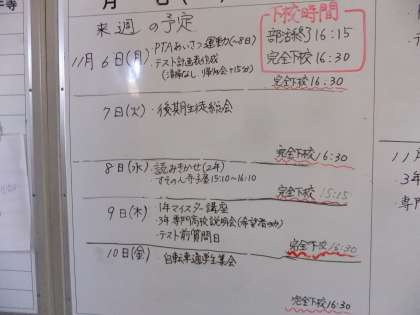 来週の予定
下校時間
部活終了16:15
完全下校16:30
11月6日(月)・PTAあいさつ運動(~8日)
・テスト計画表作成
(清掃なし 帰りの会+15分)
完全下校16:30
7日(火)・後期生徒総会
完全下校16:30
8日(水)・読みきかせ(2年)
15:10~16:10
完全下校15:15
9日(木)・1年マイスター講座
・3年専門高校説明会(希望者のみ)
・テスト前質問日
完全下校16:30
10日(金)・自転車通学生集会
完全下校16:30
11月
3年
専門